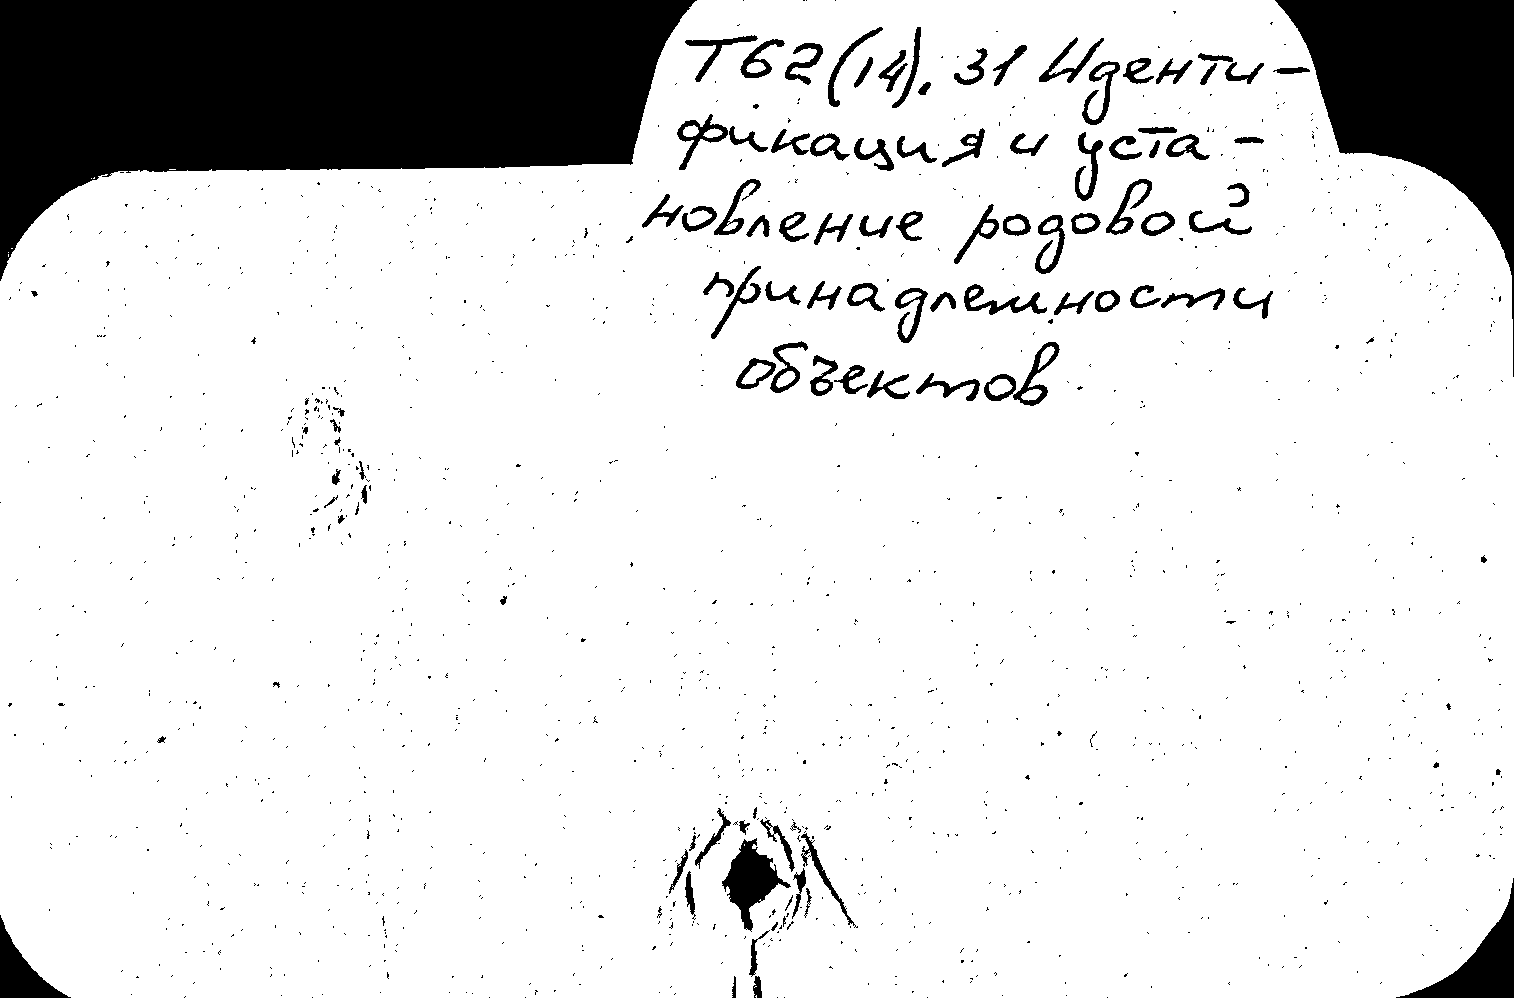 Т62(14).31 Иденти-
фикация и уста-
новление родовой
принадлежности
объектов